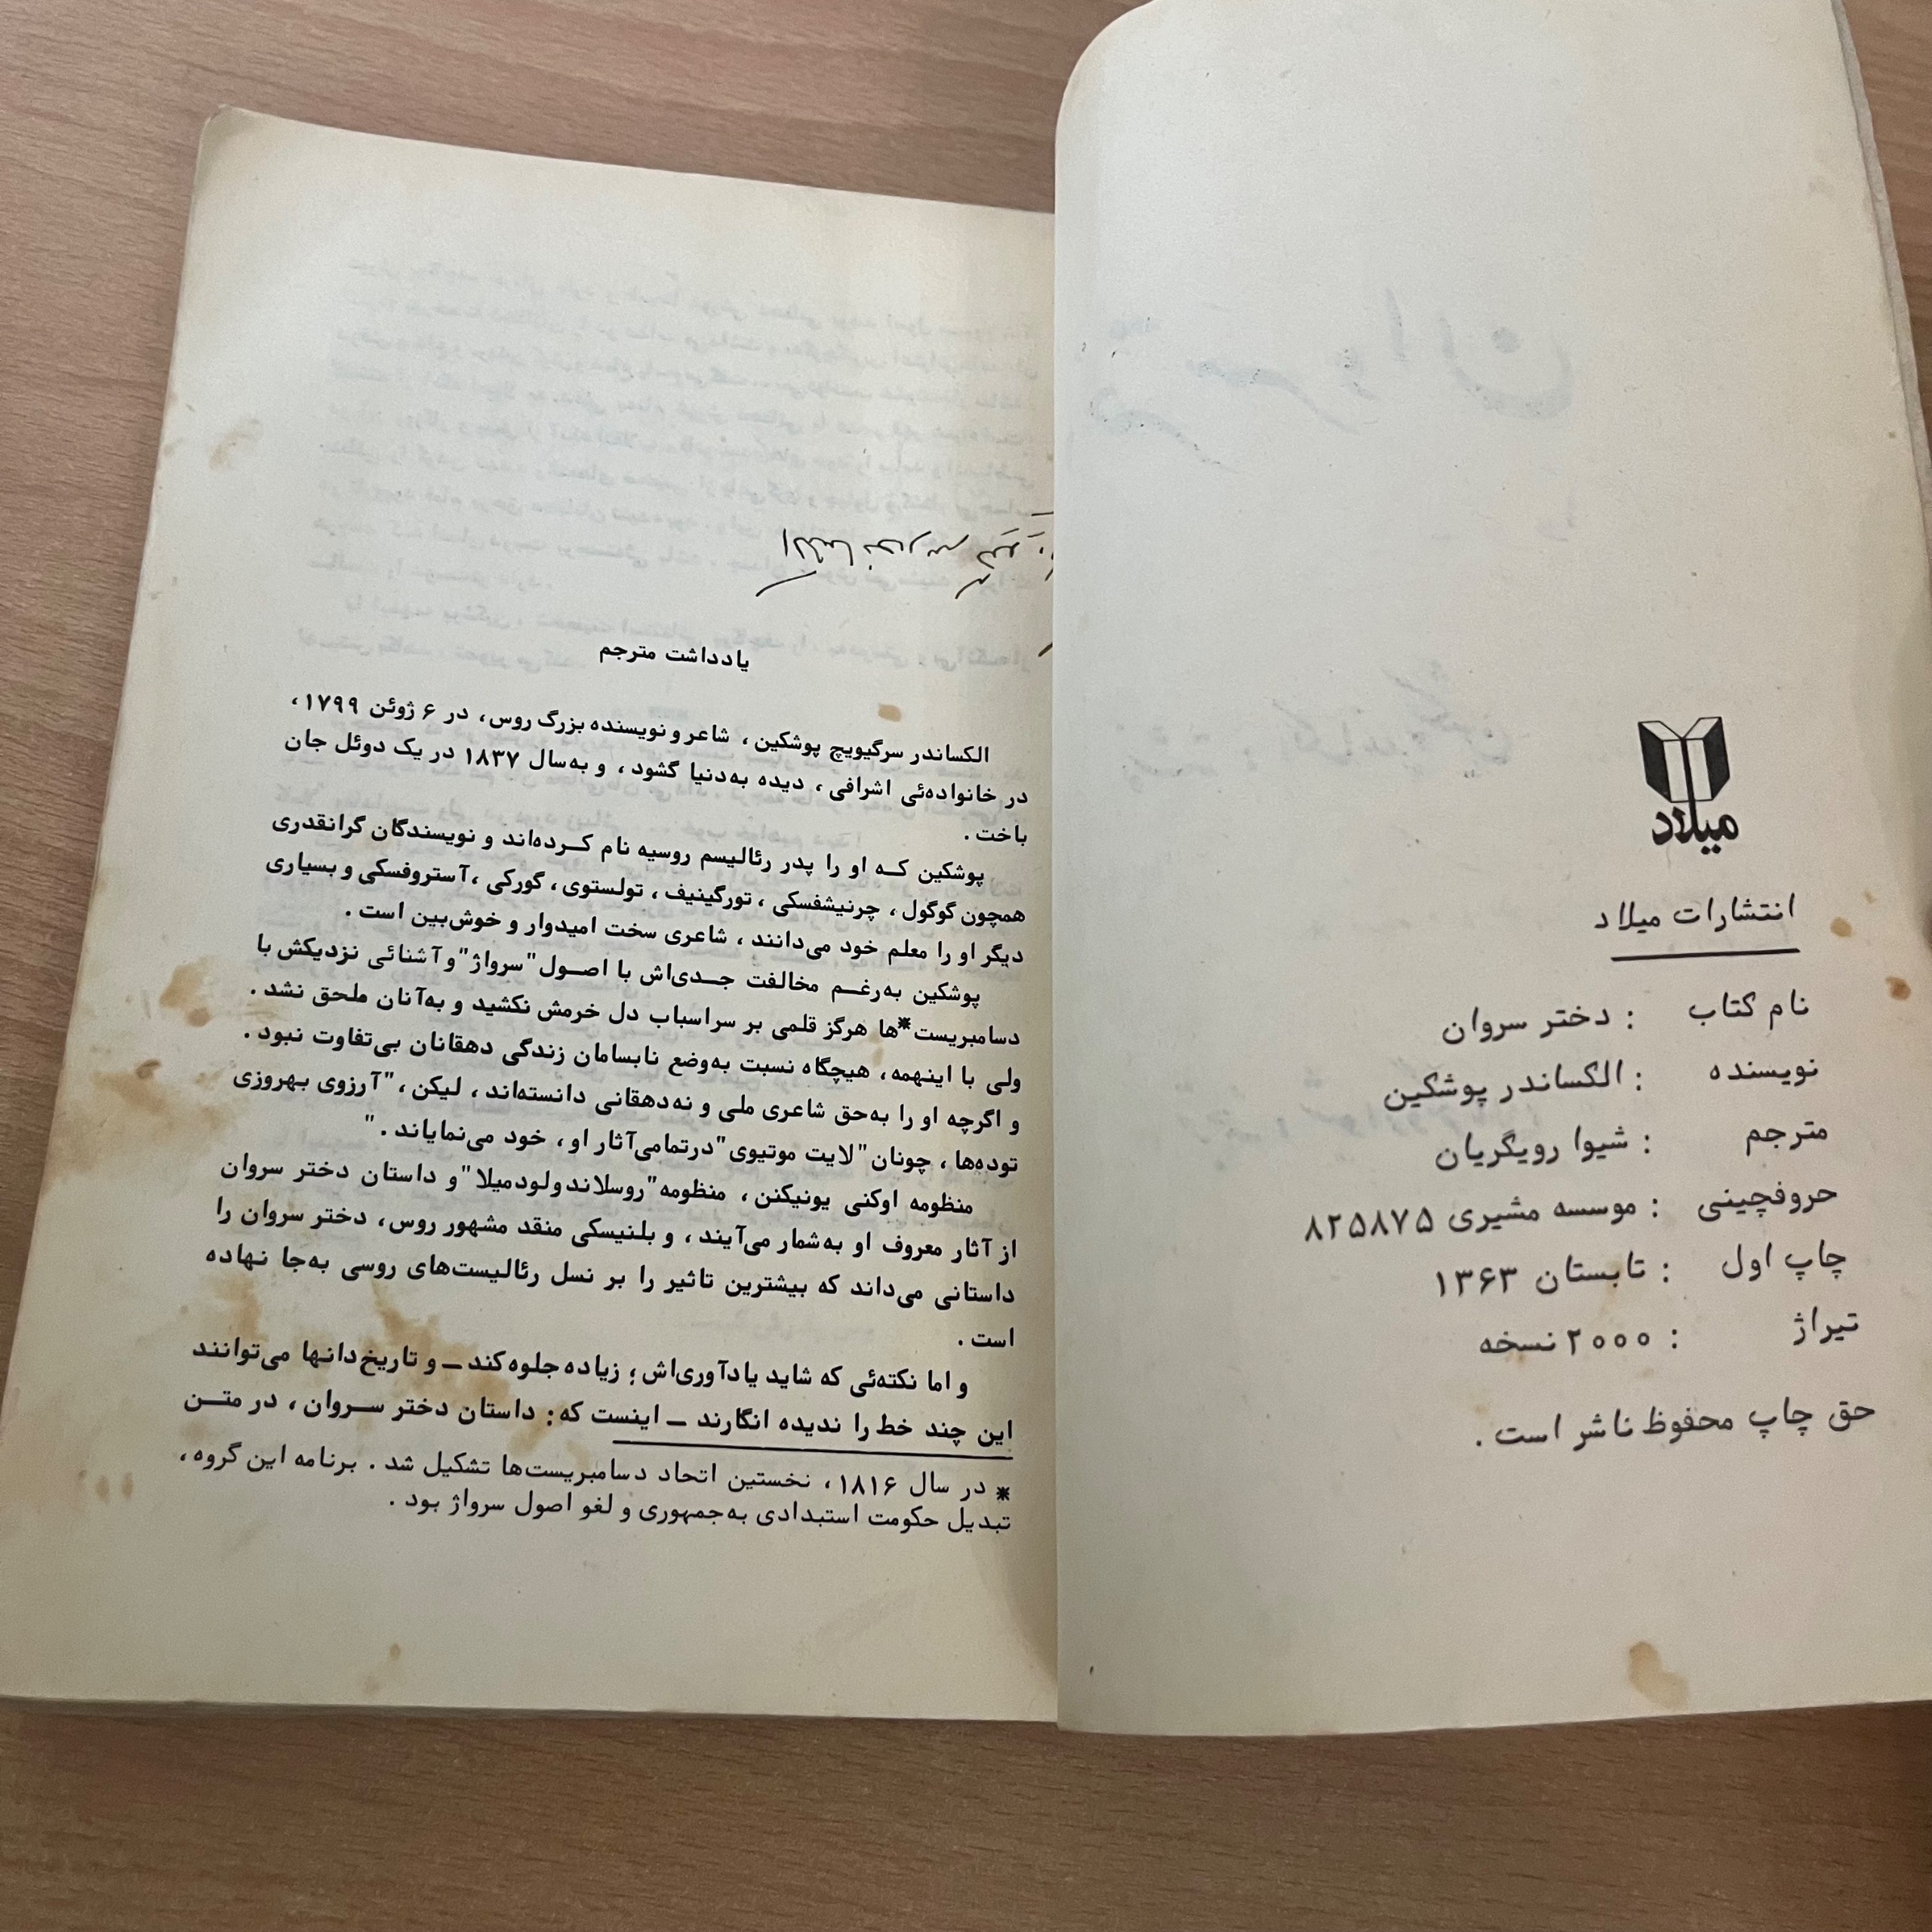 میلاد
انتشارات میلاد
نام کتاب : دختر سروان
نویسنده : الکساندر پوشکین
مترجم : شیوا رویگریان
حروفچینی : موسسه مشیری ۸۲۵۸۷۵
چاپ اول : تابستان ۱۳۶۳
تیراژ : ۲۰۰۰ نسخه
حق چاپ محفوظ ناشر است .
یادداشت مترجم
الکساندر سرگیویچ پوشکین ، شاعر و نویسنده بزرگ روس، در ۶ ژوئن ۱۷۹۹،
در خانواده‌ئی اشرافی ، دیده به‌دنیا گشود ، و به‌سال ۱۸۳۷ در یک دوئل جان
باخت .
پوشکین کـه او را پدر رئالیسم روسیه نام کـرده‌اند و نویسندگان گرانقدری
همچون گوگول ، چرنیشفسکی ، تورگینیف ، تولستوی ، گورکی ، آستروفسکی و بسیاری
دیگر او را معلم خود می‌دانند ، شاعری سخت امیدوار و خوش‌بین است .
پوشکین به‌رغـم مخالفت جـدی‌اش با اصـول "سرواژ" و آشنائی نزدیکش با
دسامبریست*ها هرگز قلمی بر سراسباب دل خرمش نکشید و به‌آنان ملحق نشد .
ولی با اینهمه، هیچگاه نسبت به‌وضع نابسامان زندگی دهقانان بی‌تفاوت نبود .
و اگرچه او را به‌حق شاعری ملی و نه‌دهقانی دانسته‌اند ، لیکن ، "آرزوی بهروزی
توده‌ها ، چونان "لایت موتیوی" درتمامی‌آثار او ، خود می‌نمایاند . "
منظومه اوکنی یونیکنن ، منظومه "روسلاند ولودمیلا" و داستان دختر سروان
از آثار معروف او به‌شمار می‌آیند ، و بلنیسکی منقد مشهور روس، دختر سروان را
داستانی می‌داند که بیشترین تاثیر را بر نسل رئالیست‌های روسی به‌جا نهاده
است .
و اما نکته‌ئی که شاید یادآوری‌اش ؛ زیاده جلوه‌کند ــ و تاریخ‌دانها می‌توانند
این چند خط را ندیده انگارند ــ اینست که: داستان دختر سـروان ، در متـن
* در سال ۱۸۱۶، نخستین اتحاد دسامبریست‌ها تشکیل شد . برنامه این گروه ،
تبدیل حکومت استبدادی به‌جمهوری و لغو اصول سرواژ بود .